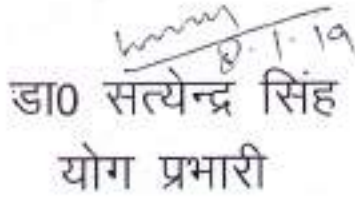 8.1.19
डा0 सत्येन्द्र सिंह
योग प्रभारी